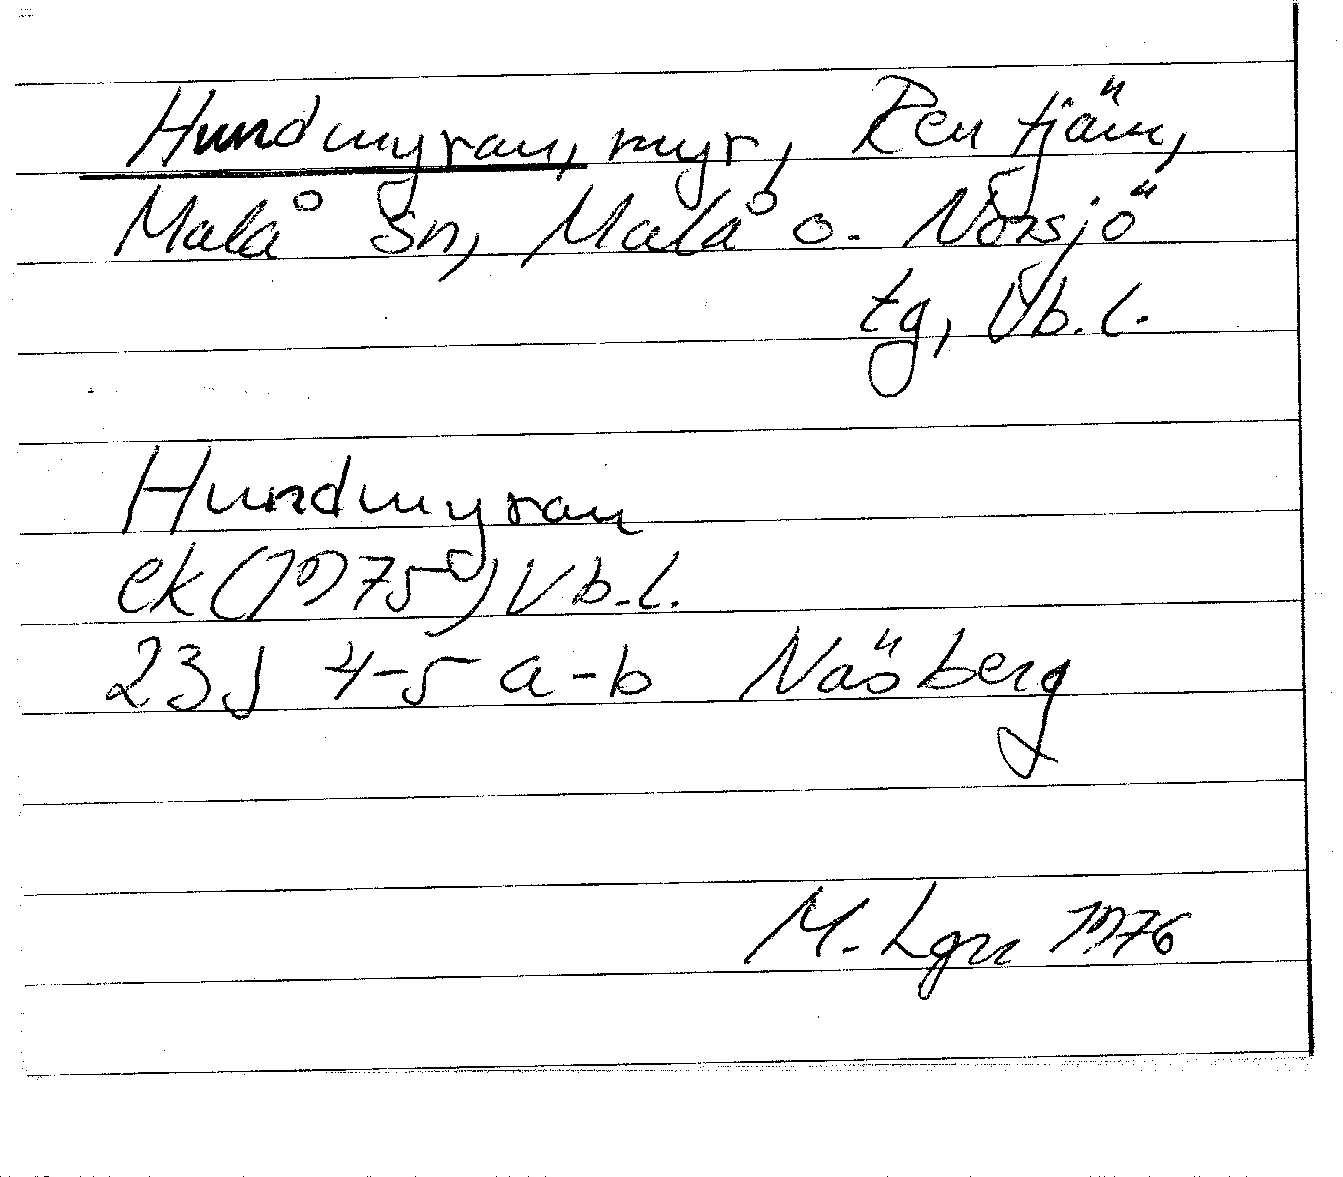 Hundmyran, myr, Rentjärn,
Malå sn, Malå o. Norsjö
tg, Vb.l.
Hundmyran
ek (1975) Vb.l.
23J 4-5 a-b Näsberg
M. Lgn 1976